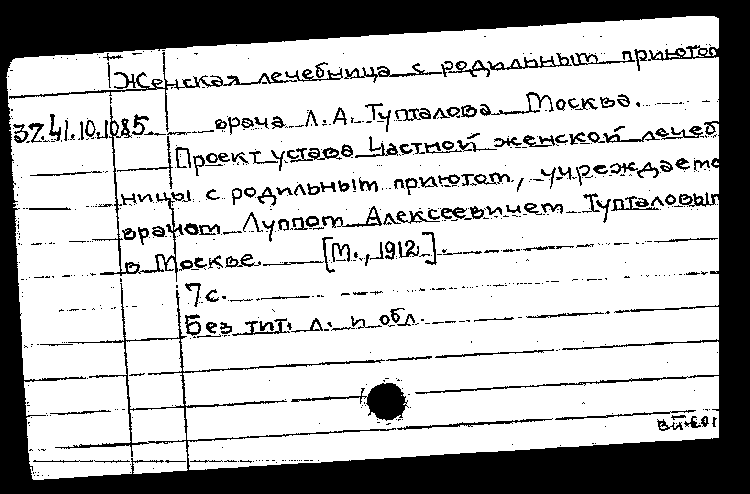 Женская лечебница с родильным приютом
37.41.10.1085 врача Л.А. Тупталова. Москва.
Проект устава частной женской лечеб
ницы с родильным приютом, учреждаемо
врачом Луппом Алексеевичем Тупталовым
в Москве. [М., 1912].
7с.
Без тит. л. и обл.